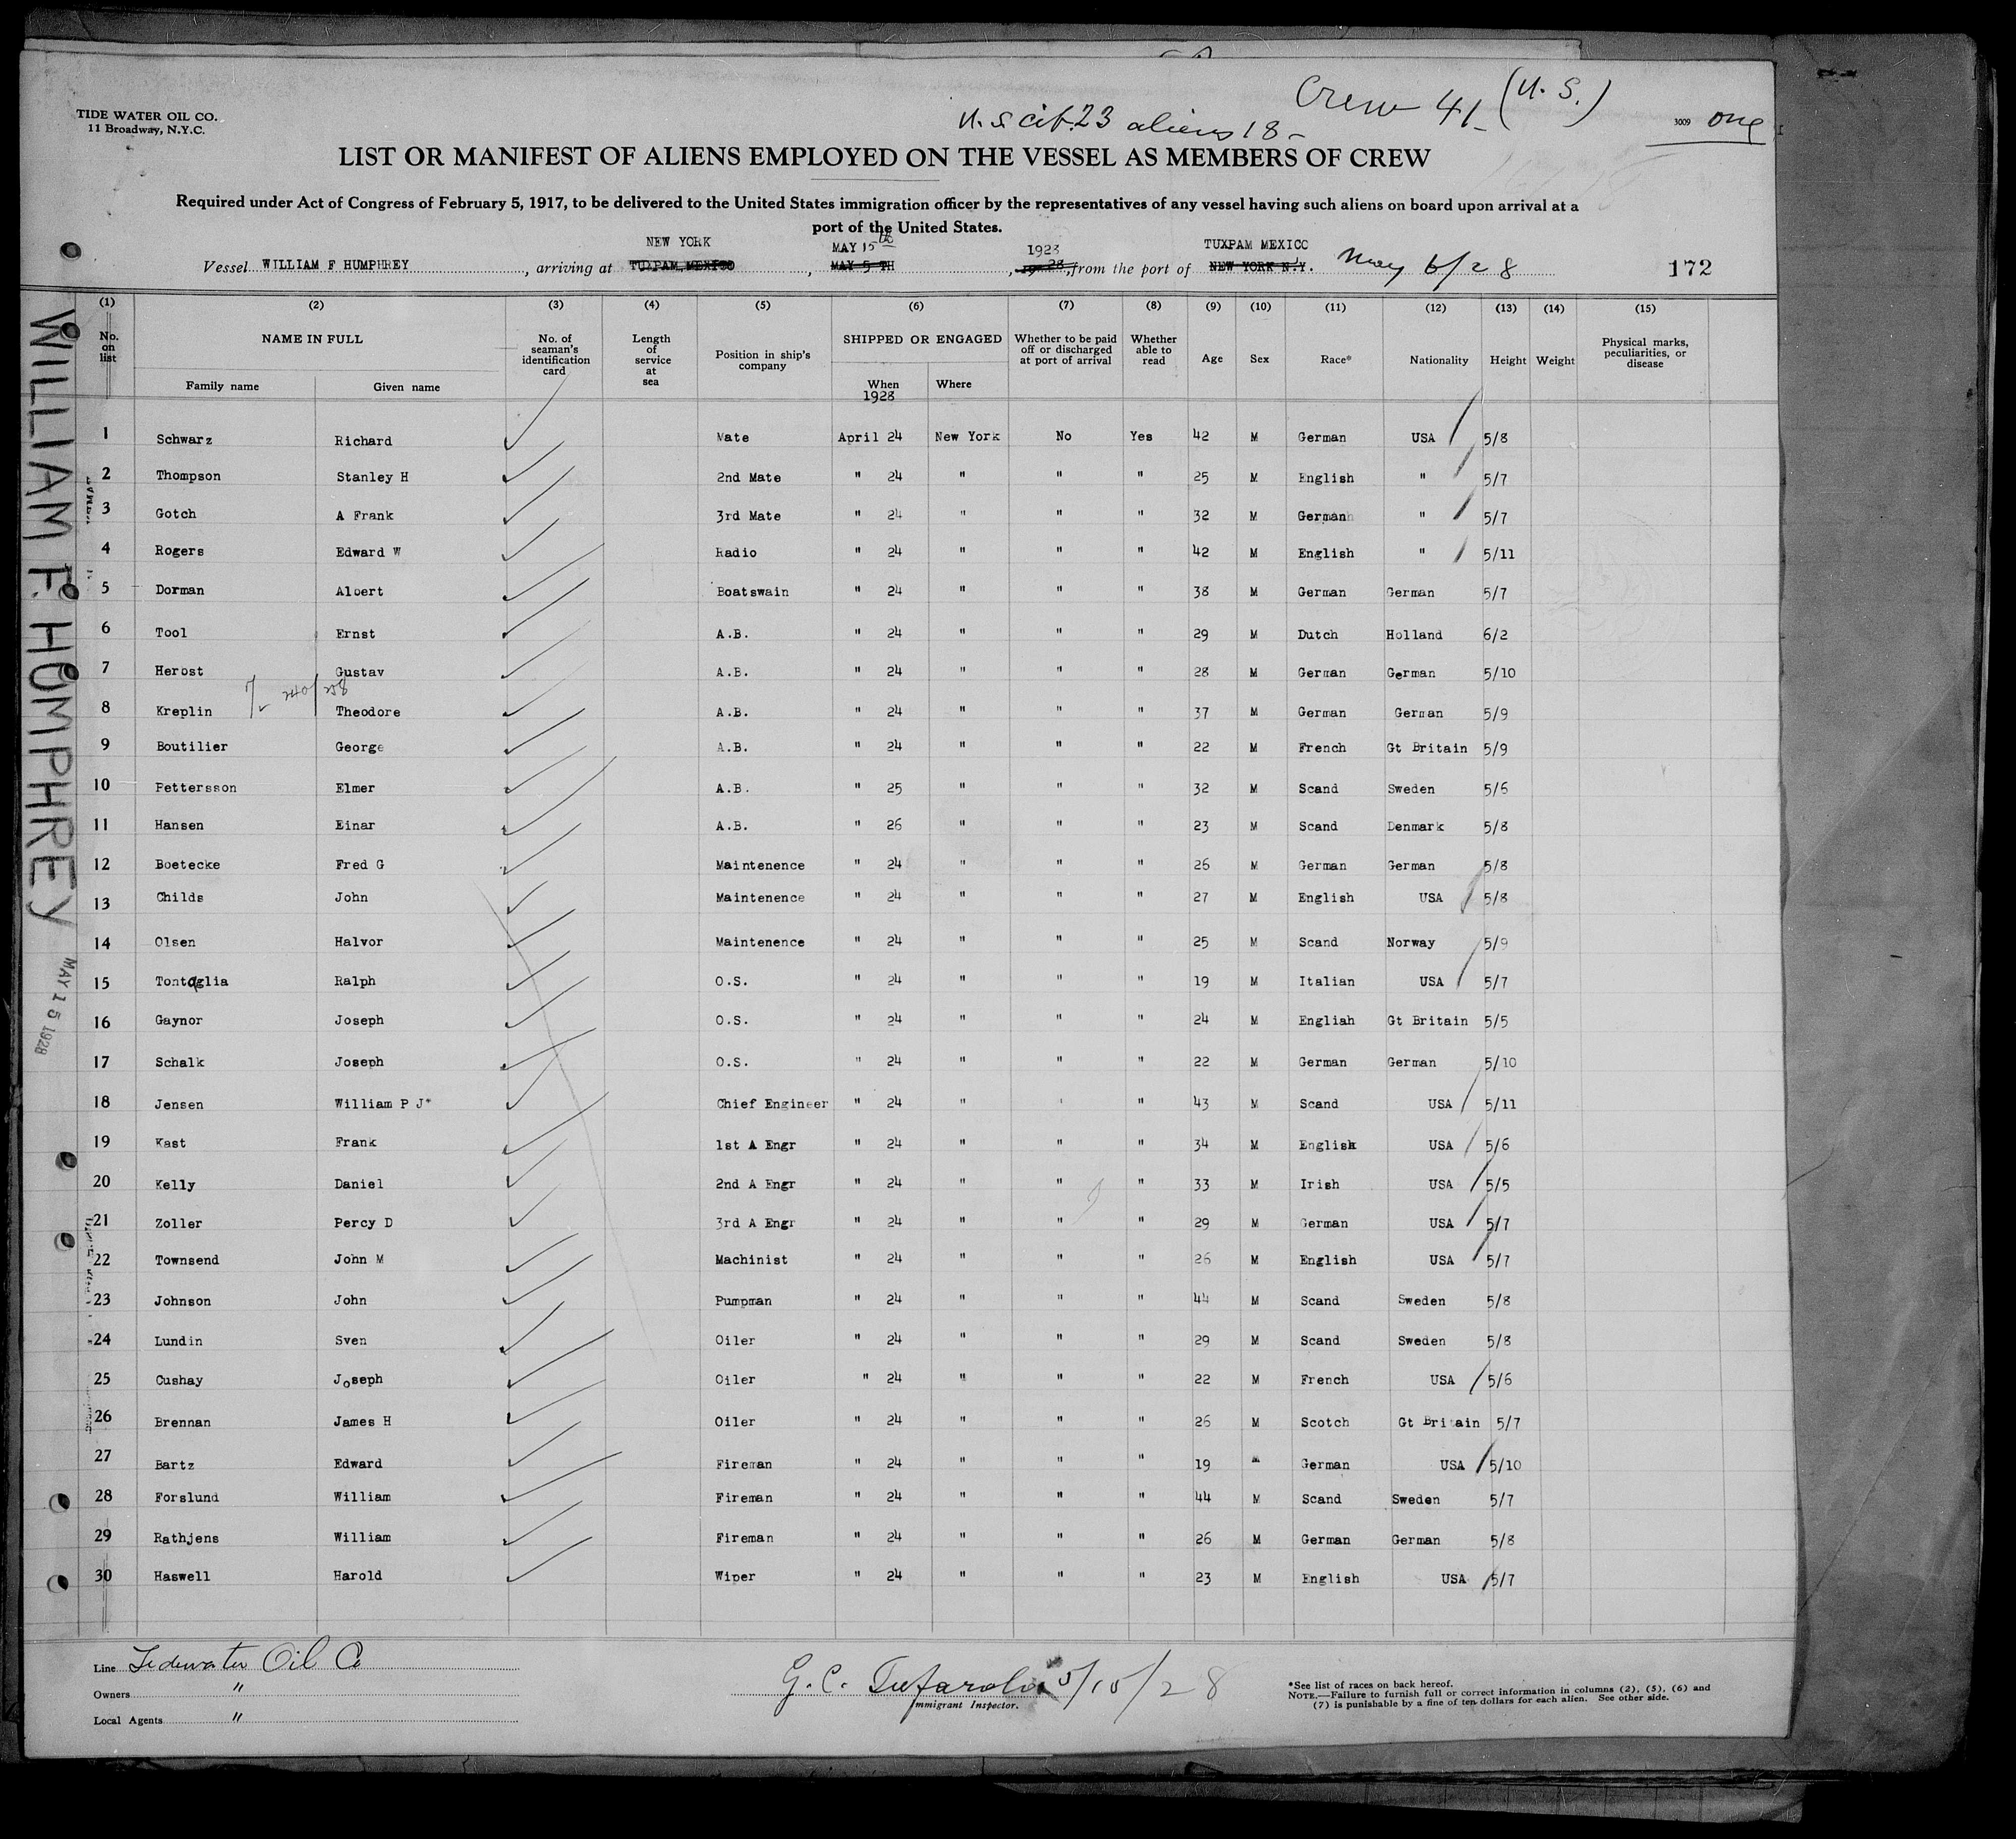 Crew 41 (U. S.)
TIDE WATER OIL CO.
11 Broadway, N.Y.C.
U. S cit. 23 aliens 18 -
3009 one
LIST OR MANIFEST OF ALIENS EMPLOYED ON THE VESSEL AS MEMBERS OF CREW
Required under Act of Congress of February 5, 1917, to be delivered to the United States immigration officer by the representatives of any vessel having such aliens on board upon arrival at a
port of the United States.
NEW YORK MAY 15th 1928 TUXPAM MEXICO
Vessel WILLIAM F HUMPHREY, arriving at TUXPAM, MEXICO, MAY 5 TH, 1928, from the port of NEW YORK N.Y. May 6/28 172
(1) (2) (3) (4) (5) (6) (7) (8) (9) (10) (11) (12) (13) (14) (15)
No. on list NAME IN FULL Family name Given name No. of seaman's identification card Length of service at sea Position in ship's company SHIPPED OR ENGAGED When 1928 Where Whether to be paid off or discharged at port of arrival Whether able to read Age Sex Race* Nationality Height Weight Physical marks, peculiarities, or disease
1 Schwarz Richard Mate April 24 New York No Yes 42 M German USA 5/8
2 Thompson Stanley H 2nd Mate " 24 " " " 25 M English " 5/7
3 Gotch A Frank 3rd Mate " 24 " " " 32 M German " 5/7
4 Rogers Edward W Radio " 24 " " " 42 M English " 5/11
5 Dorman Albert Boatswain " 24 " " " 38 M German German 5/7
6 Tool Ernst A.B. " 24 " " " 29 M Dutch Holland 6/2
7 Herbst Gustav A.B. " 24 " " " 28 M German German 5/10
240/258
8 Kreplin Theodore A.B. " 24 " " " 37 M German German 5/9
9 Boutilier George A.B. " 24 " " " 22 M French Gt Britain 5/9
10 Pettersson Elmer A.B. " 25 " " " 32 M Scand Sweden 5/6
11 Hansen Einar A.B. " 26 " " " 23 M Scand Denmark 5/8
12 Boetecke Fred G Maintenence " 24 " " " 26 M German German 5/8
13 Childs John Maintenence " 24 " " " 27 M English USA 5/8
14 Olsen Halvor Maintenence " 24 " " " 25 M Scand Norway 5/9
15 Tontaglia Ralph O.S. " 24 " " " 19 M Italian USA 5/7
16 Gaynor Joseph O.S. " 24 " " " 24 M Engliah Gt Britain 5/5
17 Schalk Joseph O.S. " 24 " " " 22 M German German 5/10
18 Jensen William P J* Chief Engineer " 24 " ' " 43 M Scand USA 5/11
19 Kast Frank 1st A Engr " 24 " " " 34 M English USA 5/6
20 Kelly Daniel 2nd A Engr " 24 " " " 33 M Irish USA 5/5
21 Zoller Percy D 3rd A Engr " 24 " " " 29 M German USA 5/7
22 Townsend John M Machinist " 24 " " " 26 M English USA 5/7
23 Johnson John Pumpman " 24 " " " 44 M Scand Sweden 5/8
24 Lundin Sven Oiler " 24 " " " 29 M Scand Sweden 5/8
25 Cushay Joseph Oiler " 24 " " " 22 M French USA 5/6
26 Brennan James H Oiler " 24 " " " 26 M Scotch Gt Britain 5/7
27 Bartz Edward Fireman " 24 " " " 19 M German USA 5/10
28 Forslund William Fireman " 24 " " " 44 M Scand Sweden 5/7
29 Rathjens William Fireman " 24 " " " 26 M German German 5/8
30 Haswell Harold Wiper " 24 " " " 23 M English USA 5/7
WILLIAM F. HUMPHREY MAY 15 1928
Line Tidewater Oil Co
Owners "
Local Agents "
G. C. 5/15/28
Immigrant Inspector.
*See list of races on back hereof.
NOTE.—Failure to furnish full or correct information in columns (2), (5), (6) and
(7) is punishable by a fine of ten dollars for each alien. See other side.